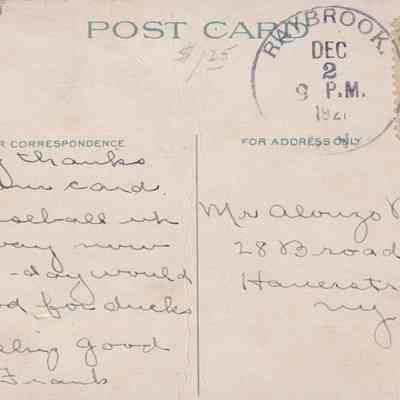 POST CARD
$1.25
RAYBROOK.
DEC
2
9 P.M.
R CORRESPONDENCE
FOR ADDRESS ONLY
thanks
card.
seball
way now
-day would
od for ducks
eling good
Frank
Mr Alonzo
28 Broad
Haverstr
NY